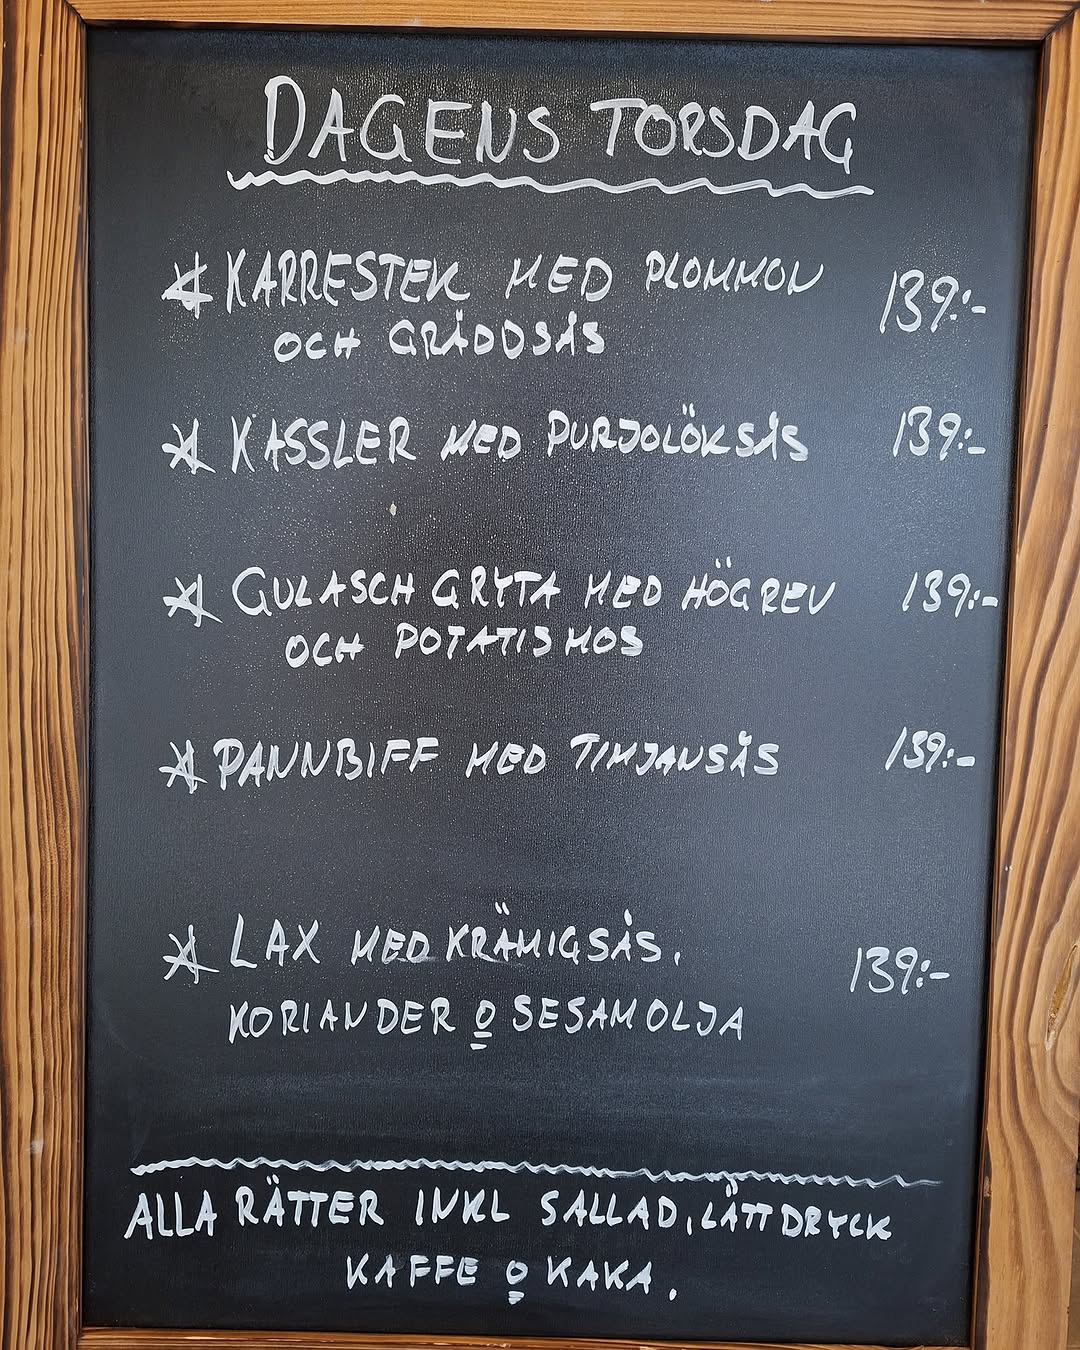 DAGENS TORSDAG
* KARRESTEK MED PLOMMON 139:-
OCH GRÄDDSÅS
* KASSLER MED PURJOLÖKSÅS 139:-
* GULASCH GRYTA MED HÖGREV 139:-
OCH POTATISMOS
* PANNBIFF MED TIMJANSÅS 139:-
* LAX MED KRÄMIGSÅS. 139:-
KORIANDER O SESAMOLJA
ALLA RÄTTER INKL SALLAD, LÄTTDRYCK
KAFFE O KAKA.